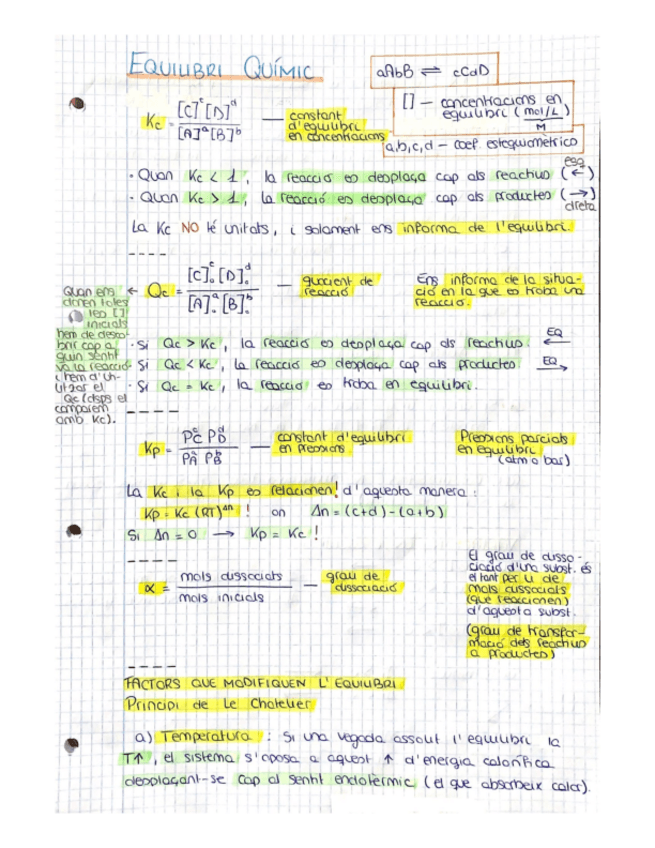 EQUILIBRI QUÍMIC
aAbB ⇌ cCdD
Kc = [C]^c [D]^d / [A]^a [B]^b — constant d'equilibri en concentracions
[] — concentracions en equilibri (mol/L) M
a,b,c,d — coef. estequiomètrico
· Quan Kc < 1, la reacció es desplaça cap als reactius (←) esq
· Quan Kc > 1, la reacció es desplaça cap als productes (→) dreta
La Kc NO té unitats, i solament ens informa de l'equilibri.
----
Quan ens
donen totes
les []
inicials
hem de desco-
brir cap a
quin sentit
va la reacció
i hem d'uti-
litzar el
Qc (dsps el
comparem
amb Kc).
← Qc = [C]₀^c [D]₀^d / [A]₀^a [B]₀^b — quocient de reacció
Ens informa de la situa-
ció en la que es troba una
reacció.
· Si Qc > Kc, la reacció es desplaça cap als reactius. EQ ←
· Si Qc < Kc, la reacció es desplaça cap als productes EQ →
· Si Qc = Kc, la reacció es troba en equilibri.
----
Kp = PC^c PD^d / PA^a PB^b — constant d'equilibri en pressions
Pressions parcials
en equilibri
(atm o bar)
La Kc i la Kp es relacionen! d'aquesta manera:
Kp = Kc (RT)^Δn ! on Δn = (c+d) - (a+b)
Si Δn = 0 → Kp = Kc !
----
α = mols dissociats / mols inicials — grau de dissociació
El grau de disso-
ciació d'una subst. és
el tant per u de
mols dissociats
(que reaccionen)
d'aquesta subst.
(grau de transfor-
mació dels reactius
a productes)
----
FACTORS QUE MODIFIQUEN L'EQUILIBRI
Principi de Le Chatelier
a) Temperatura : Si una vegada assolit l'equilibri la
T↑, el sistema s'oposa a aquest ↑ d'energia calorífica
desplaçant-se cap al sentit endotèrmic (el que absorbeix calor).